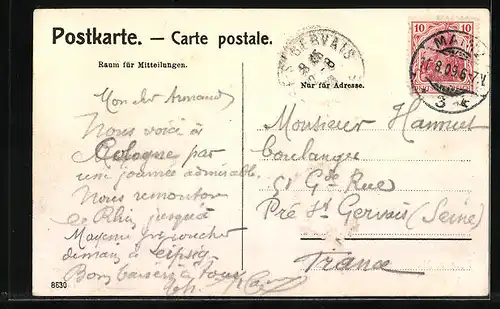 Postkarte. — Carte postale.
Raum für Mitteilungen.
Nur für Adresse.
GERVAIS
10 10
MAINZ
8.09.6-7V
Mon cher Armand
Nous voici à
Cologne par
une journée admirable.
Nous remontons
le Rhin jusqu'à
Mayence
demain à Leipsig.
Bons baisers à tous
Monsieur Hamuet
boulanger
51 Gde Rue
Pré St Gervais (Seine)
France
8630